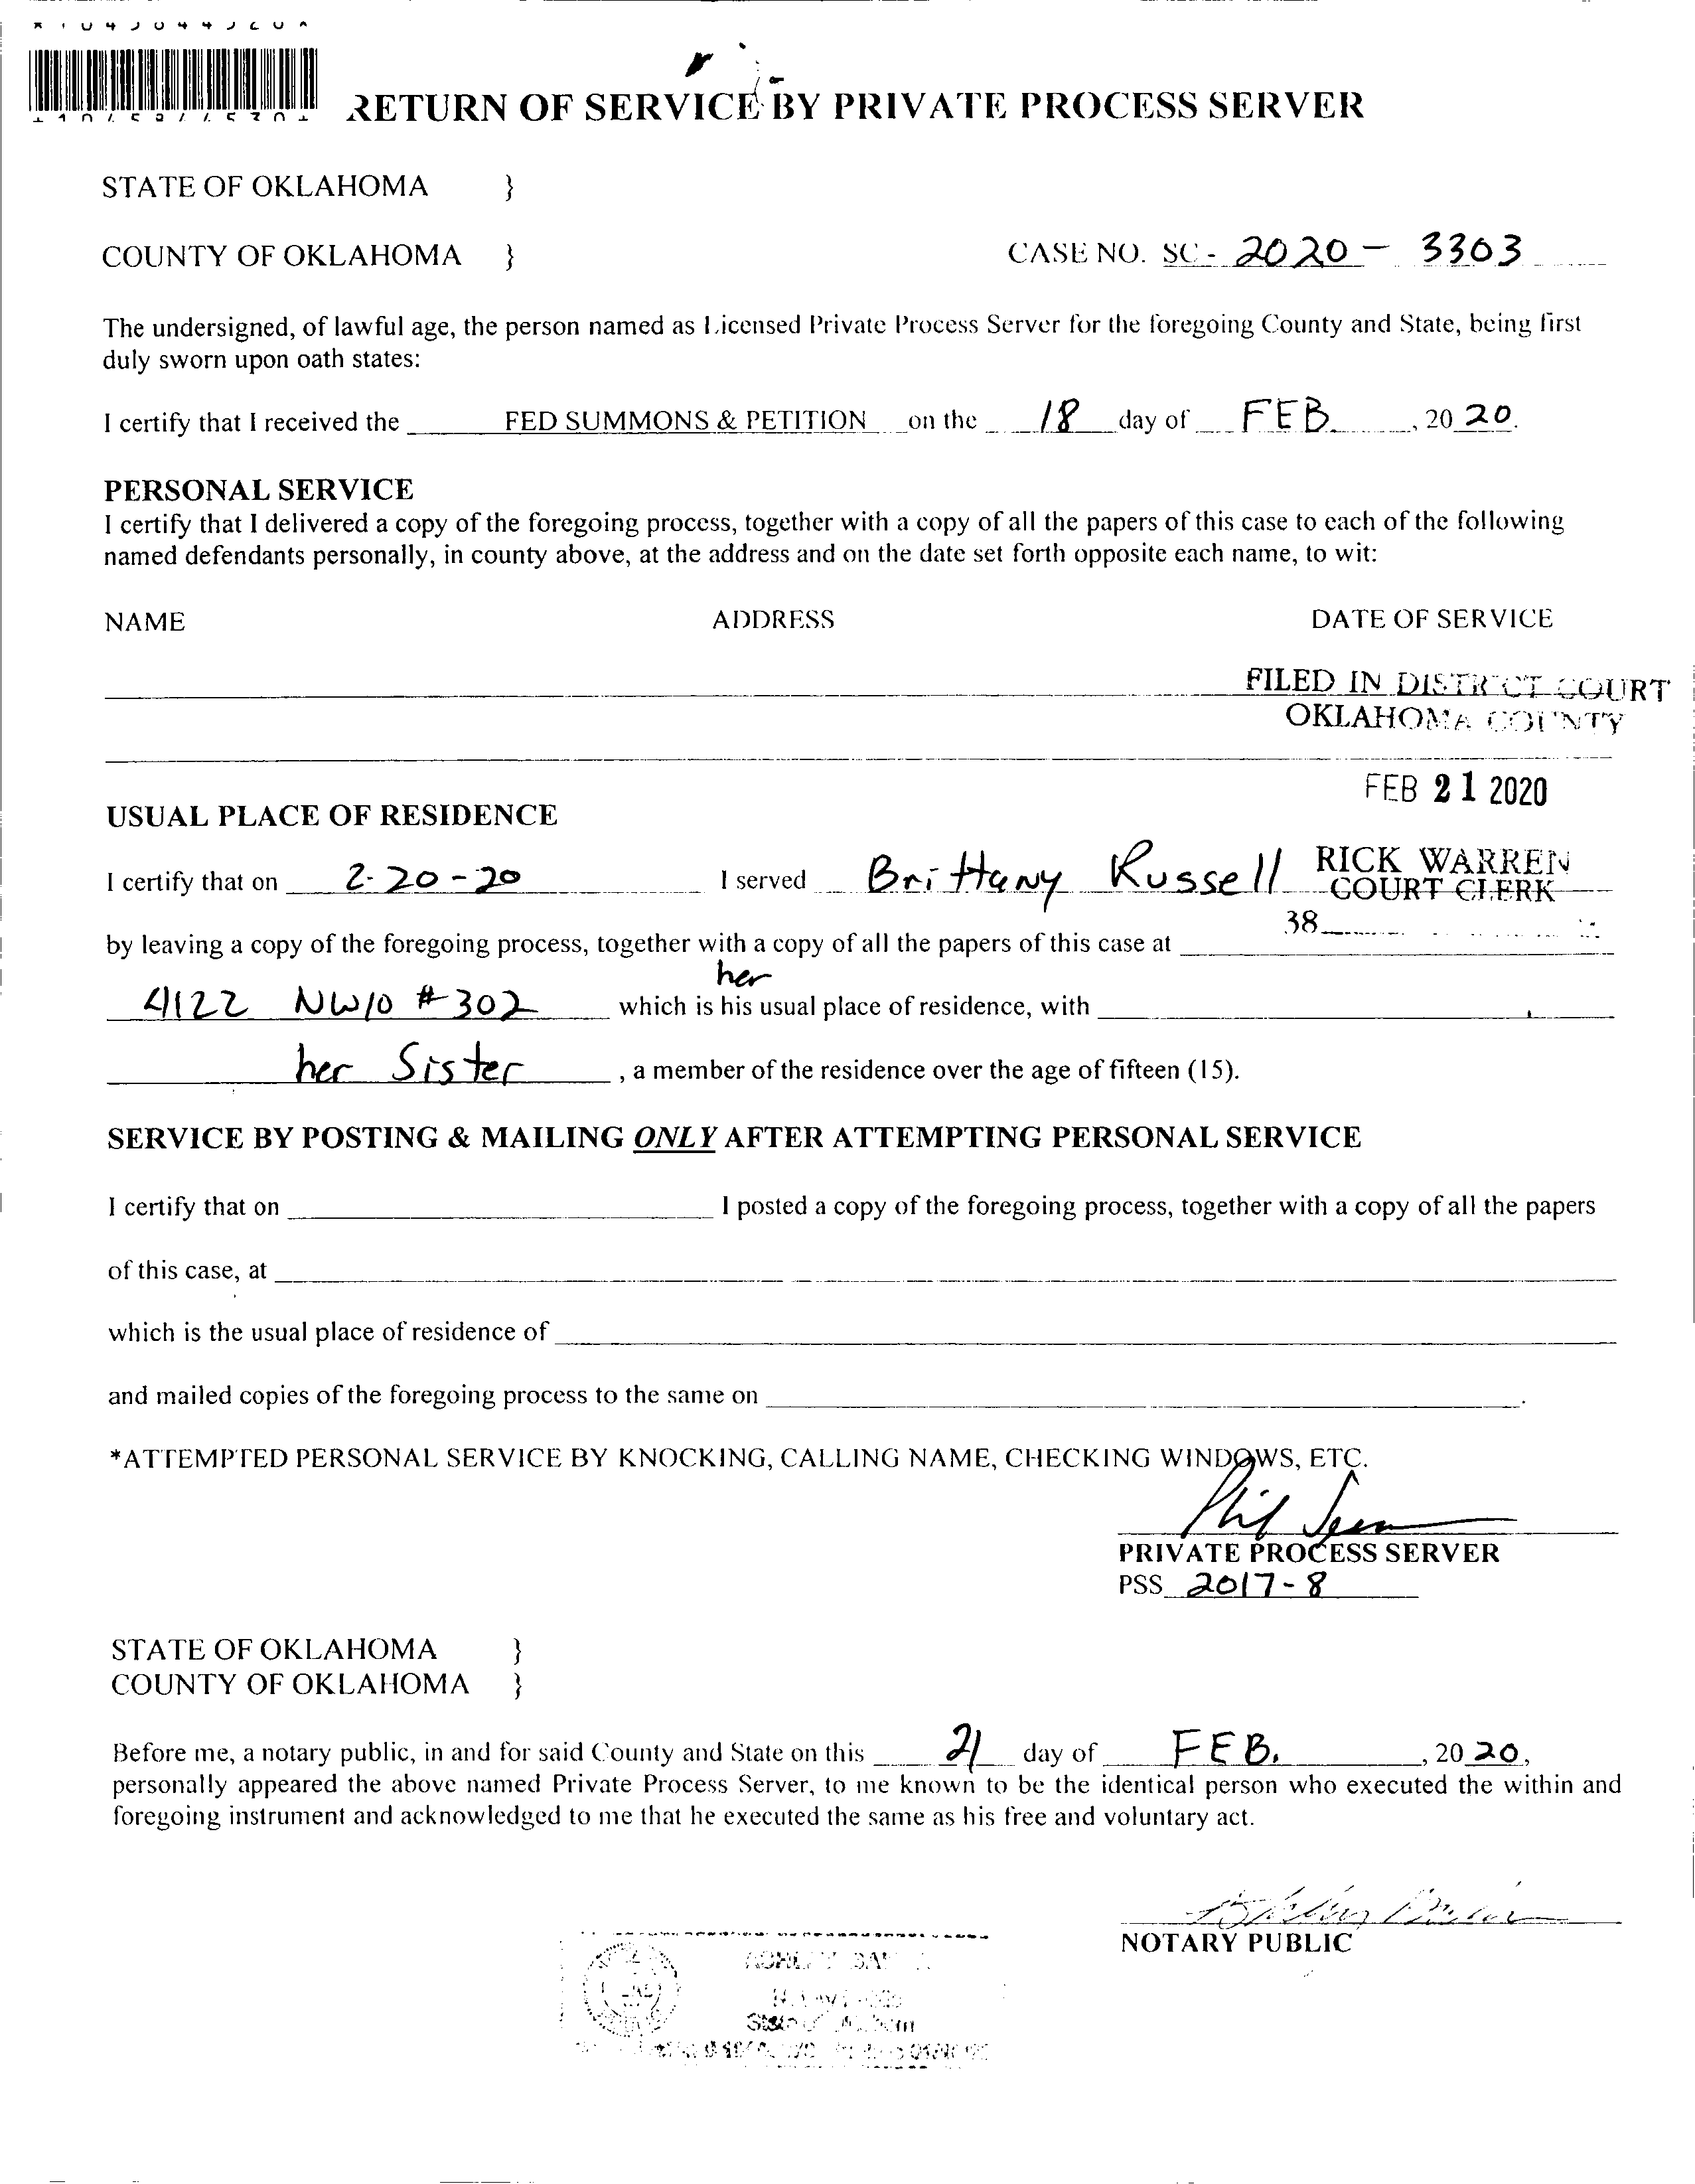 RETURN OF SERVICE BY PRIVATE PROCESS SERVER
STATE OF OKLAHOMA }
COUNTY OF OKLAHOMA } CASE NO. SC - 2020 - 3303
The undersigned, of lawful age, the person named as Licensed Private Process Server for the foregoing County and State, being first
duly sworn upon oath states:
I certify that I received the FED SUMMONS & PETITION on the 18 day of FEB. , 20 20.
PERSONAL SERVICE
I certify that I delivered a copy of the foregoing process, together with a copy of all the papers of this case to each of the following
named defendants personally, in county above, at the address and on the date set forth opposite each name, to wit:
NAME ADDRESS DATE OF SERVICE
FILED IN DISTRICT COURT
OKLAHOMA COUNTY
FEB 21 2020
USUAL PLACE OF RESIDENCE
RICK WARREN
COURT CLERK
I certify that on 2-20-20 I served Brittany Russell
38
by leaving a copy of the foregoing process, together with a copy of all the papers of this case at
her
4122 NW10 #302 which is his usual place of residence, with
her Sister , a member of the residence over the age of fifteen (15).
SERVICE BY POSTING & MAILING ONLY AFTER ATTEMPTING PERSONAL SERVICE
I certify that on I posted a copy of the foregoing process, together with a copy of all the papers
of this case, at
which is the usual place of residence of
and mailed copies of the foregoing process to the same on .
*ATTEMPTED PERSONAL SERVICE BY KNOCKING, CALLING NAME, CHECKING WINDOWS, ETC.
Phil
PRIVATE PROCESS SERVER
PSS 2017-8
STATE OF OKLAHOMA }
COUNTY OF OKLAHOMA }
Before me, a notary public, in and for said County and State on this 21 day of FEB. , 20 20,
personally appeared the above named Private Process Server, to me known to be the identical person who executed the within and
foregoing instrument and acknowledged to me that he executed the same as his free and voluntary act.
NOTARY PUBLIC